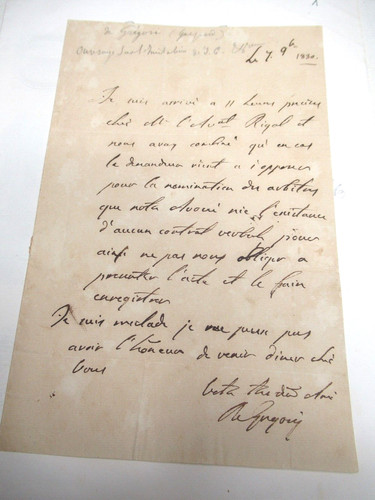 de Gregori
Le 7. 9b 1830.
Je suis arrivé a 11 heures précises
ché Mr l'Avat Rigal et
nous avons combiné qu'en cas
le demandeur vient a s'opposer
pour la nomination des arbitres
que notre Avoué nie l'existance
d'aucun contrat verbal, pour
ainsi ne pas nous obliger a
presenter l'acte et le faire
enregistrer
Je suis malade je ne puis pas
avoir l'honneur de venir diner ché
Vous
Votre ami
De Gregori